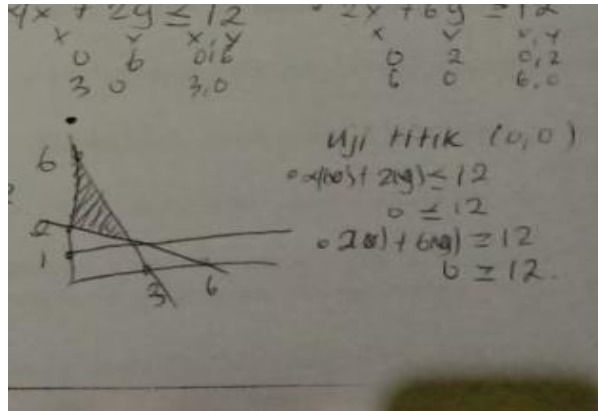 4x + 2y ≤ 12
x y x,y
0 6 0,6
3 0 3,0
2x + 6y ≥ 12
x y x,y
0 2 0,2
6 0 6,0
6
2
1
3
6
Uji titik (0,0)
2(0) ≤ 12
0 ≤ 12
2(0) + 6(0) ≥ 12
≥ 12